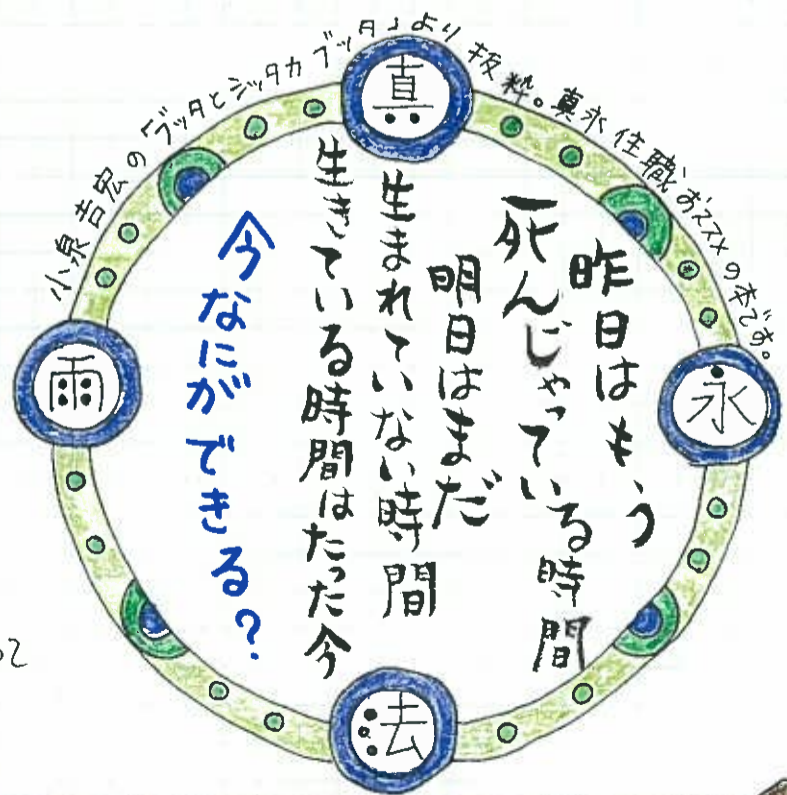 小泉吉宏の「ブッタとシッタカブッタ」より抜粋。真永住職おススメの本です。
真
永
法
雨
昨日はもう
死んじゃっている時間
明日はまだ
生まれていない時間
生きている時間はたった今
今なにができる?